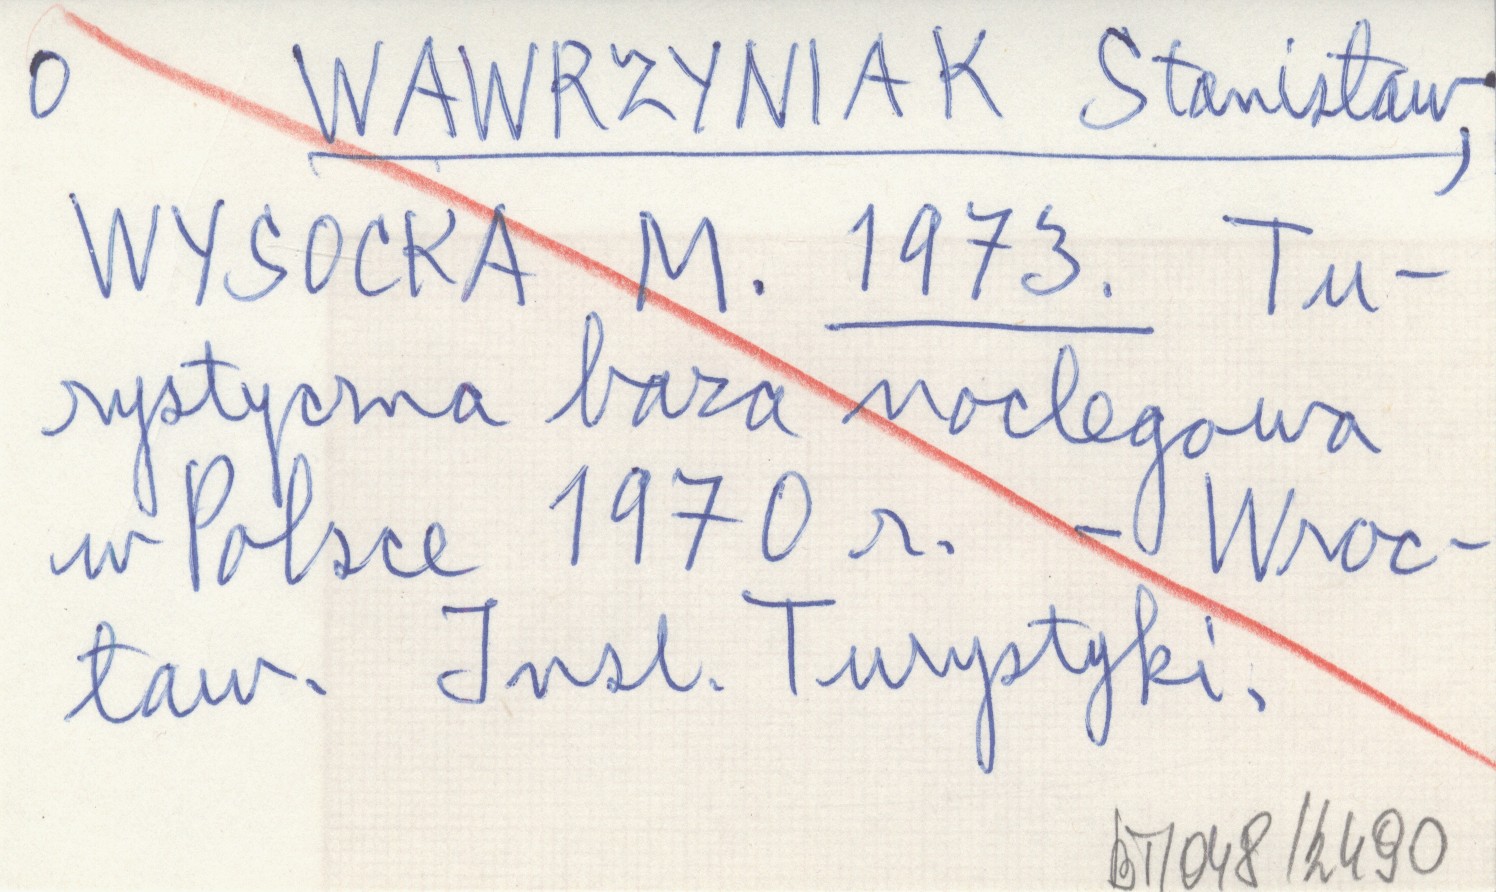 O WAWRZYNIAK Stanisław,
WYSOCKA M. 1973. Tu-
rystyczna baza noclegowa
w Polsce 1970 r. - Wroc-
ław. Inst. Turystyki.
BT/048/2490